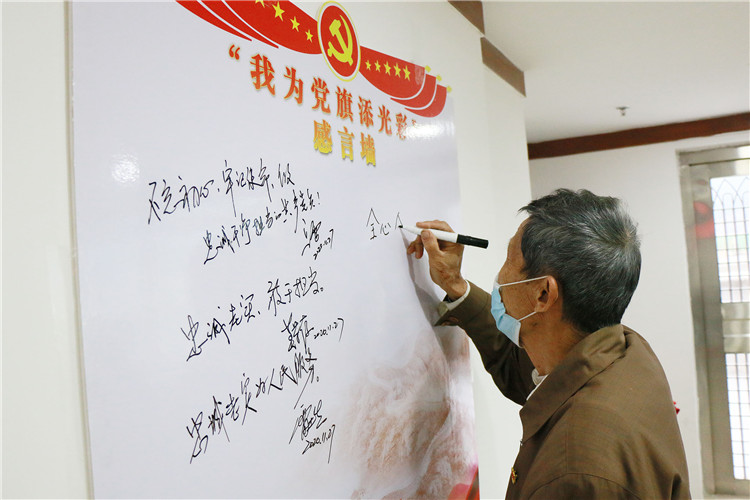 “我为党旗添光彩
感言墙
不忘初心、牢记使命、做
忠诚干净担当的共产党员！
2020.11.27
全心
忠诚老实、敢于担当。
2020.11.27
忠诚老实为人民服务。
2020.11.27